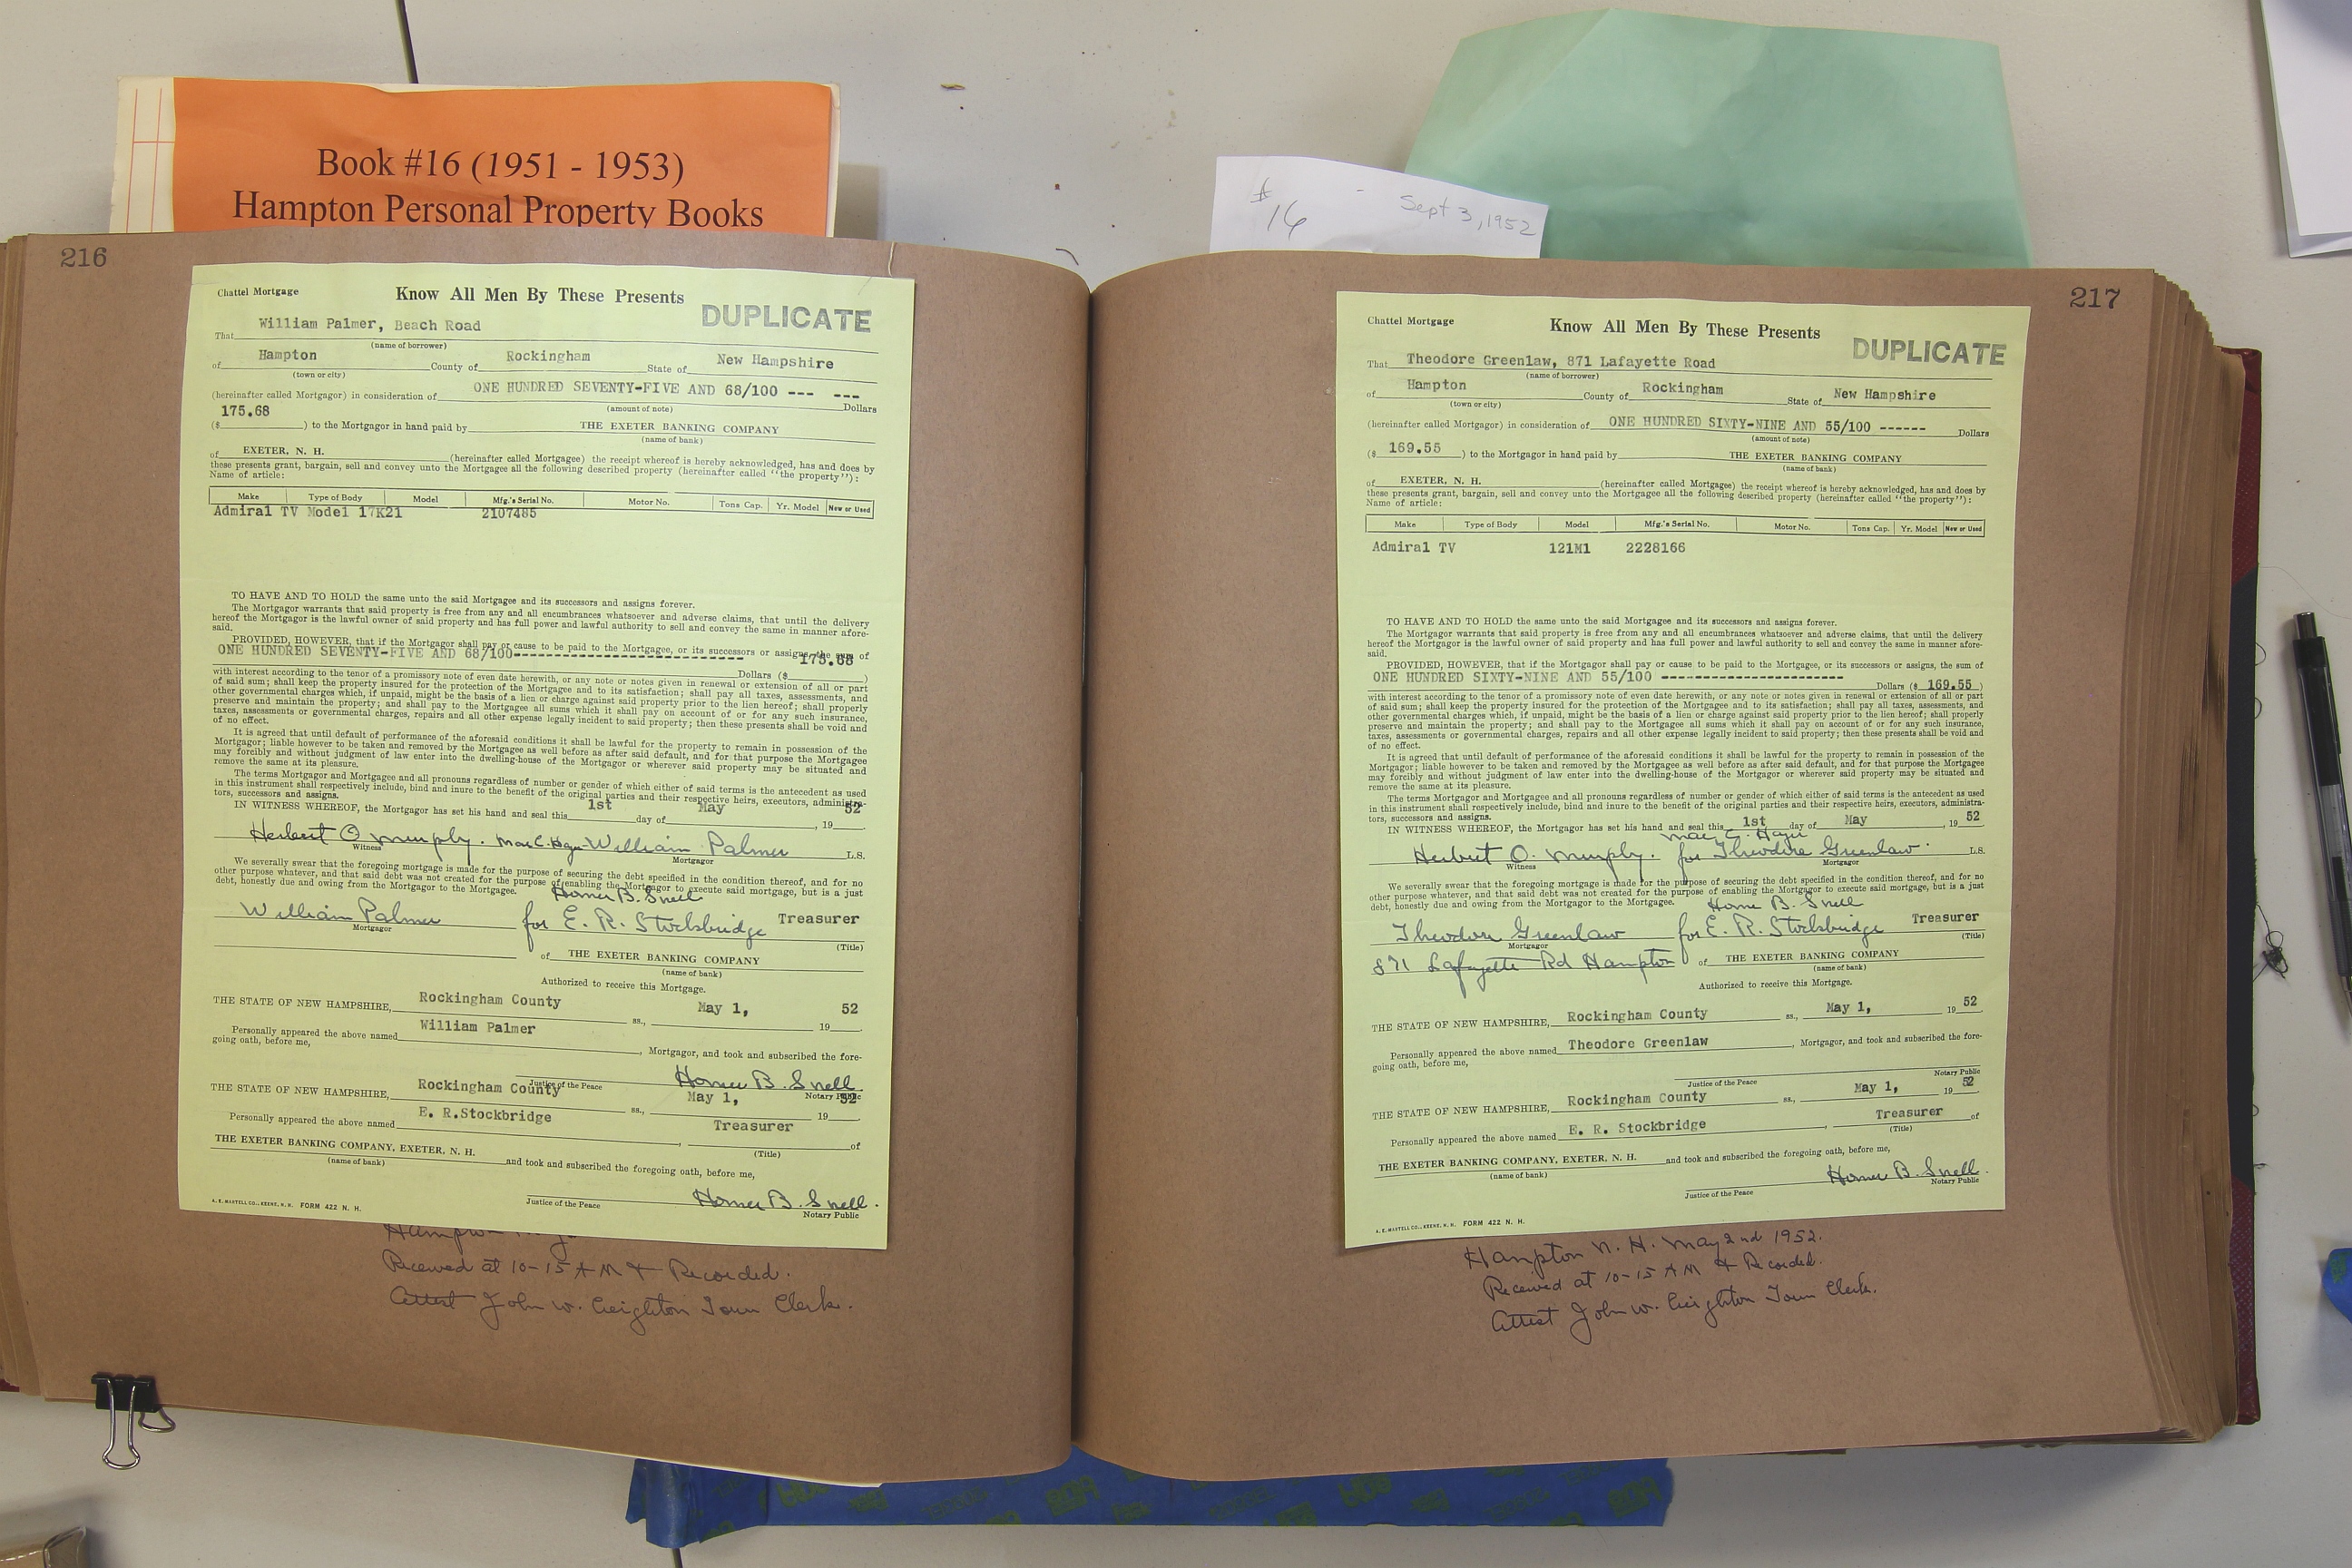 Book #16 (1951 - 1953)
Hampton Personal Property Books
# 16 - Sept 3, 1952
216
Chattel Mortgage
Know All Men By These Presents
DUPLICATE
That William Palmer, Beach Road
(name of borrower)
of Hampton County of Rockingham State of New Hampshire
(town or city)
(hereinafter called Mortgagor) in consideration of ONE HUNDRED SEVENTY-FIVE AND 68/100 --- --- Dollars
(amount of note)
($ 175.68 ) to the Mortgagor in hand paid by THE EXETER BANKING COMPANY
(name of bank)
of EXETER, N. H. (hereinafter called Mortgagee) the receipt whereof is hereby acknowledged, has and does by
these presents grant, bargain, sell and convey unto the Mortgagee all the following described property (hereinafter called "the property"):
Name of article:
Make Type of Body Model Mfg.'s Serial No. Motor No. Tons Cap. Yr. Model New or Used
Admiral TV Model 17K21 2107485
TO HAVE AND TO HOLD the same unto the said Mortgagee and its successors and assigns forever.
The Mortgagor warrants that said property is free from any and all encumbrances whatsoever and adverse claims, that until the delivery
hereof the Mortgagor is the lawful owner of said property and has full power and lawful authority to sell and convey the same in manner afore-
said.
PROVIDED, HOWEVER, that if the Mortgagor shall pay or cause to be paid to the Mortgagee, or its successors or assigns, the sum of
ONE HUNDRED SEVENTY-FIVE AND 68/100------------------------------ Dollars ($ 175.68 )
with interest according to the tenor of a promissory note of even date herewith, or any note or notes given in renewal or extension of all or part
of said sum; shall keep the property insured for the protection of the Mortgagee and to its satisfaction; shall pay all taxes, assessments, and
other governmental charges which, if unpaid, might be the basis of a lien or charge against said property prior to the lien hereof; shall properly
preserve and maintain the property; and shall pay to the Mortgagee all sums which it shall pay on account of or for any such insurance,
taxes, assessments or governmental charges, repairs and all other expense legally incident to said property; then these presents shall be void and
of no effect.
It is agreed that until default of performance of the aforesaid conditions it shall be lawful for the property to remain in possession of the
Mortgagor; liable however to be taken and removed by the Mortgagee as well before as after said default, and for that purpose the Mortgagee
may forcibly and without judgment of law enter into the dwelling-house of the Mortgagor or wherever said property may be situated and
remove the same at its pleasure.
The terms Mortgagor and Mortgagee and all pronouns regardless of number or gender of which either of said terms is the antecedent as used
in this instrument shall respectively include, bind and inure to the benefit of the original parties and their respective heirs, executors, administra-
tors, successors and assigns.
IN WITNESS WHEREOF, the Mortgagor has set his hand and seal this 1st day of May , 19 52
Herbert O. Murphy. William Palmer L.S.
Witness Mortgagor
We severally swear that the foregoing mortgage is made for the purpose of securing the debt specified in the condition thereof, and for no
other purpose whatever, and that said debt was not created for the purpose of enabling the Mortgagor to execute said mortgage, but is a just
debt, honestly due and owing from the Mortgagor to the Mortgagee.
Homer B. Snell
William Palmer for E. R. Stockbridge Treasurer
Mortgagor (Title)
of THE EXETER BANKING COMPANY
(name of bank)
Authorized to receive this Mortgage.
THE STATE OF NEW HAMPSHIRE, Rockingham County ss., May 1, 19 52
Personally appeared the above named William Palmer , Mortgagor, and took and subscribed the fore-
going oath, before me,
Homer B. Snell
Justice of the Peace Notary Public
THE STATE OF NEW HAMPSHIRE, Rockingham County ss., May 1, 19 52
Personally appeared the above named E. R.Stockbridge , Treasurer of
(Title)
THE EXETER BANKING COMPANY, EXETER, N. H. and took and subscribed the foregoing oath, before me,
(name of bank)
Homer B. Snell.
Justice of the Peace Notary Public
A. E. MARTELL CO., KEENE, N. H. FORM 422 N. H.
Hampton
Received at 10-15 AM & Recorded.
Attest John W. Creighton Town Clerk.
217
Chattel Mortgage
Know All Men By These Presents
DUPLICATE
That Theodore Greenlaw, 871 Lafayette Road
(name of borrower)
of Hampton County of Rockingham State of New Hampshire
(town or city)
(hereinafter called Mortgagor) in consideration of ONE HUNDRED SIXTY-NINE AND 55/100 ------ Dollars
(amount of note)
($ 169.55 ) to the Mortgagor in hand paid by THE EXETER BANKING COMPANY
(name of bank)
of EXETER, N. H. (hereinafter called Mortgagee) the receipt whereof is hereby acknowledged, has and does by
these presents grant, bargain, sell and convey unto the Mortgagee all the following described property (hereinafter called "the property"):
Name of article:
Make Type of Body Model Mfg.'s Serial No. Motor No. Tons Cap. Yr. Model New or Used
Admiral TV 121M1 2228166
TO HAVE AND TO HOLD the same unto the said Mortgagee and its successors and assigns forever.
The Mortgagor warrants that said property is free from any and all encumbrances whatsoever and adverse claims, that until the delivery
hereof the Mortgagor is the lawful owner of said property and has full power and lawful authority to sell and convey the same in manner afore-
said.
PROVIDED, HOWEVER, that if the Mortgagor shall pay or cause to be paid to the Mortgagee, or its successors or assigns, the sum of
ONE HUNDRED SIXTY-NINE AND 55/100 ----------------------- Dollars ($ 169.55 )
with interest according to the tenor of a promissory note of even date herewith, or any note or notes given in renewal or extension of all or part
of said sum; shall keep the property insured for the protection of the Mortgagee and to its satisfaction; shall pay all taxes, assessments, and
other governmental charges which, if unpaid, might be the basis of a lien or charge against said property prior to the lien hereof; shall properly
preserve and maintain the property; and shall pay to the Mortgagee all sums which it shall pay on account of or for any such insurance,
taxes, assessments or governmental charges, repairs and all other expense legally incident to said property; then these presents shall be void and
of no effect.
It is agreed that until default of performance of the aforesaid conditions it shall be lawful for the property to remain in possession of the
Mortgagor; liable however to be taken and removed by the Mortgagee as well before as after said default, and for that purpose the Mortgagee
may forcibly and without judgment of law enter into the dwelling-house of the Mortgagor or wherever said property may be situated and
remove the same at its pleasure.
The terms Mortgagor and Mortgagee and all pronouns regardless of number or gender of which either of said terms is the antecedent as used
in this instrument shall respectively include, bind and inure to the benefit of the original parties and their respective heirs, executors, administra-
tors, successors and assigns.
IN WITNESS WHEREOF, the Mortgagor has set his hand and seal this 1st day of May , 19 52
Herbert O. Murphy. for Theodore Greenlaw. L.S.
Witness Mortgagor
We severally swear that the foregoing mortgage is made for the purpose of securing the debt specified in the condition thereof, and for no
other purpose whatever, and that said debt was not created for the purpose of enabling the Mortgagor to execute said mortgage, but is a just
debt, honestly due and owing from the Mortgagor to the Mortgagee.
Homer B. Snell
Theodore Greenlaw for E. R. Stockbridge Treasurer
Mortgagor (Title)
871 Lafayette Rd Hampton of THE EXETER BANKING COMPANY
(name of bank)
Authorized to receive this Mortgage.
THE STATE OF NEW HAMPSHIRE, Rockingham County ss., May 1, 19 52
Personally appeared the above named Theodore Greenlaw , Mortgagor, and took and subscribed the fore-
going oath, before me,
Justice of the Peace Notary Public
THE STATE OF NEW HAMPSHIRE, Rockingham County ss., May 1, 19 52
Personally appeared the above named E. R. Stockbridge , Treasurer of
(Title)
THE EXETER BANKING COMPANY, EXETER, N. H. and took and subscribed the foregoing oath, before me,
(name of bank)
Homer B. Snell.
Justice of the Peace Notary Public
A. E. MARTELL CO., KEENE, N. H. FORM 422 N. H.
Hampton N. H. May 2nd 1952.
Received at 10-15 AM & Recorded.
Attest John W. Creighton Town Clerk.